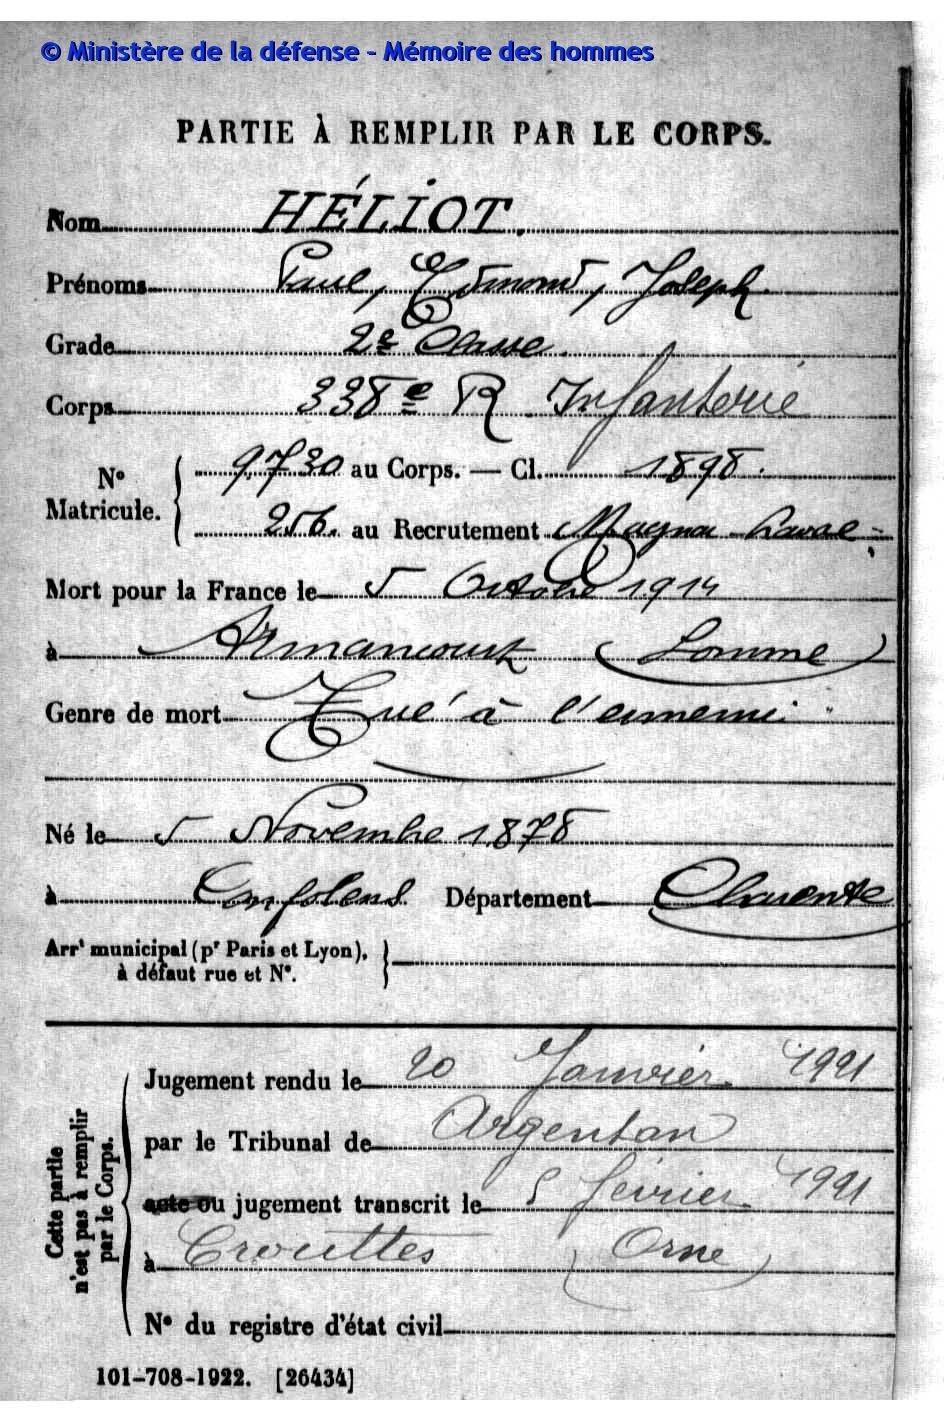 © Ministère de la défense - Mémoire des hommes
PARTIE À REMPLIR PAR LE CORPS.
Nom HÉLIOT.
Prénoms Paul, Edmond, Joseph.
Grade 2e Classe.
Corps 338e R Infanterie
No Matricule. 9.730 au Corps. — Cl. 1898.
256. au Recrutement Magnac-Laval
Mort pour la France le 5 Octobre 1914
à Armancourt (Somme)
Genre de mort Tué à l'ennemi
Né le 5 Novembre 1878
à Confolens Département Charente
Arrt municipal (pr Paris et Lyon),
à défaut rue et No.
Cette partie n'est pas à remplir par le Corps.
Jugement rendu le 20 Janvier 1921
par le Tribunal de Argentan
acte ou jugement transcrit le 5 février 1921
à Crouttes (Orne)
No du registre d'état civil
101-708-1922. [26434]